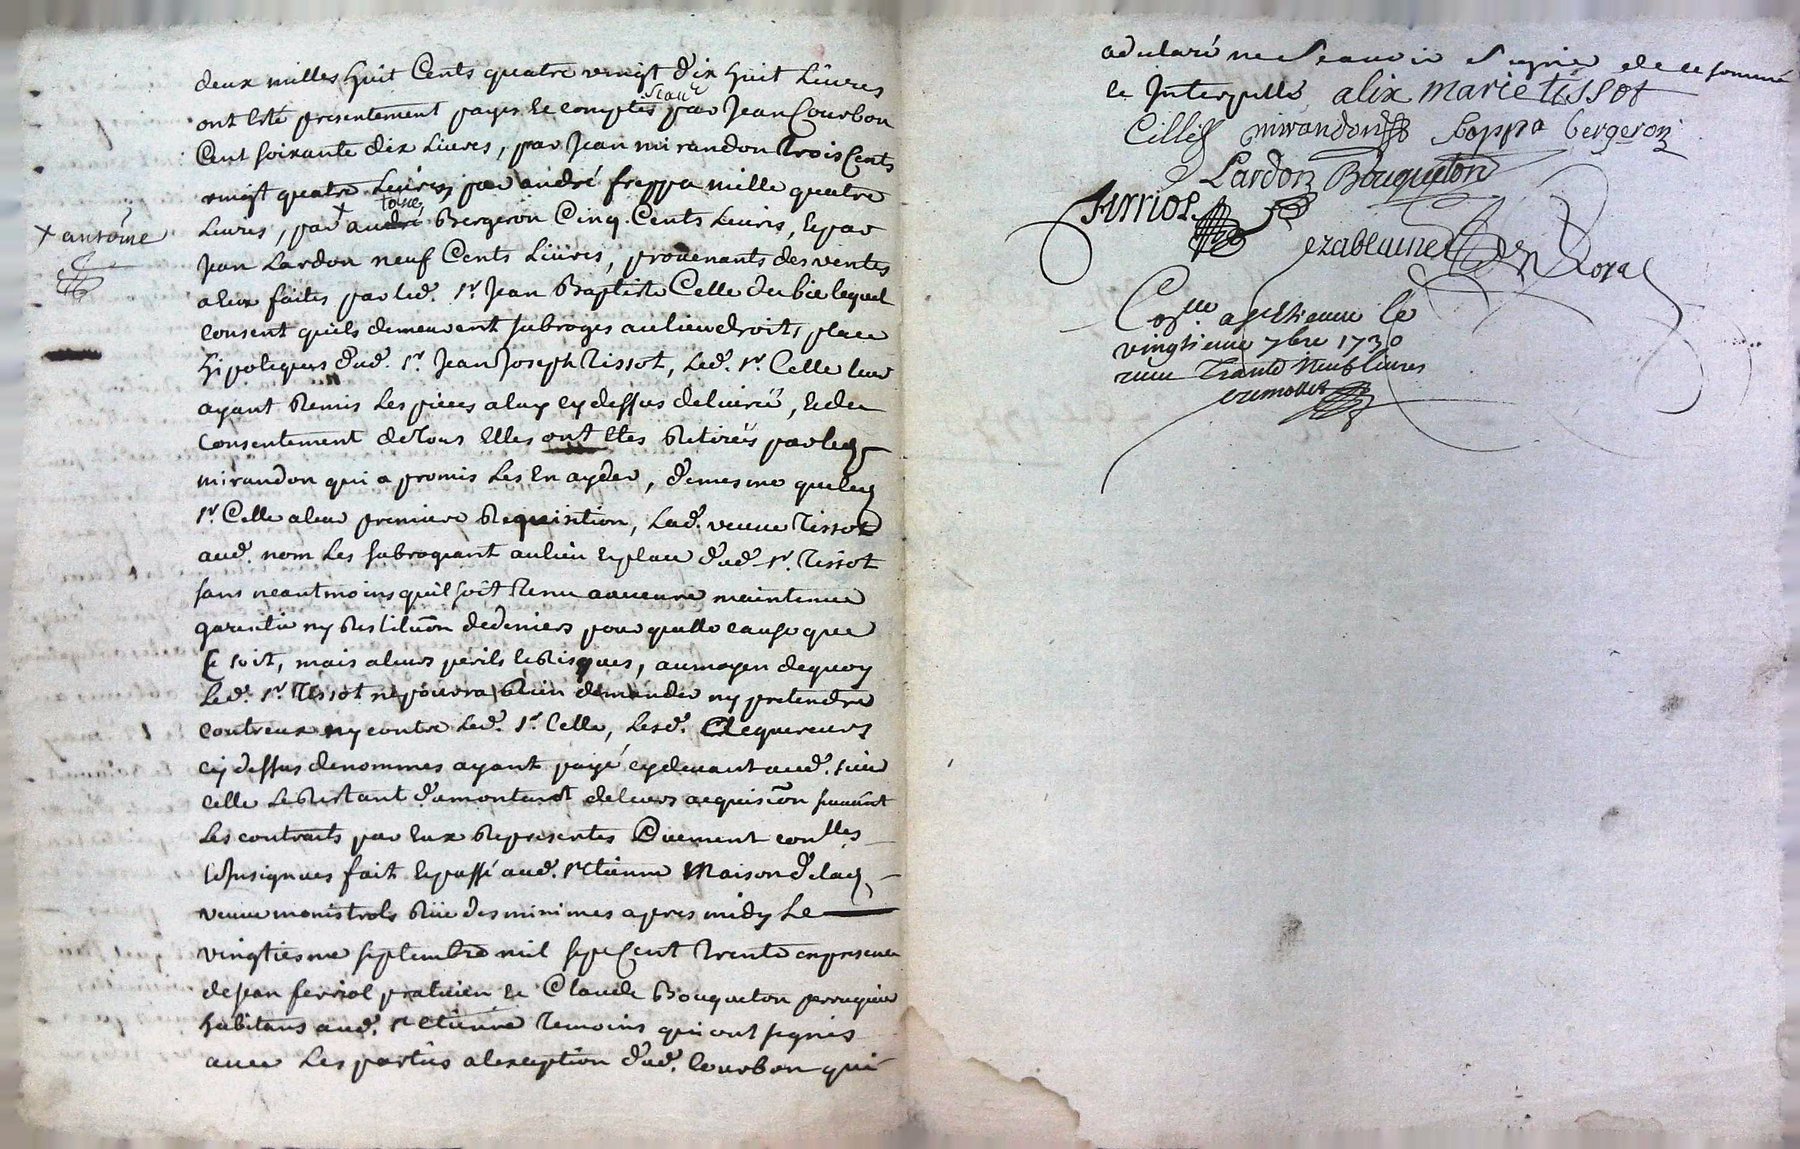 deux milles huit Cents quatre vingt dix huit Livres
ont Esté presentement payés et comptés scavoir par Jean Courbon
Cent soixante dix Livres, par Jean mirandon Trois Cents
vingt quatre Livres, par andré freppa mille quatre
Livres, par andré Bergeron Cinq Cents Livres, Et par
x antoine
Jean Lardon neuf Cents Livres, provenants des ventes
a Eux faites par led. Sr. Jean Baptiste Celle du bie lequel
consent quils demeurent subrogés au lieu droits, place
hipoteques dud. Sr. Jean Joseph Tissot, Led. Sr. Celle leur
ayant Remis Les pieces a luy cy dessus delivrée, Et du
consentement de Tous Elles ont Etes Retirées par led.
mirandon qui a promis Les En ayder, de mesme que led.
Sr. Celle a leur premiere Requisition, Lad. veuve Tissot
aud. nom Les subrogeant au lieu Et place dud. Sr. Tissot
sans neantmoins quil soit Tenu a aucune maintenue
garentie ny Restitution de deniers pour quelle cause que
Ce soit, mais a leurs perils Et Risques, au moyen de quoy
Led. Sr. Tissot ne pourra Rien demander ny pretendre
contreux ny contre Led. Sr. Celle, Lesd. acquereurs
cy dessus denommés ayant payé cy devant aud. sieur
Celle Le Restant du montant de leurs acquision suivant
Les contrats par Eux Representés Duement conlles
Et Insignués fait Et passé aud. St Etienne Maison de lad.
veuve monistrols Rüe des minimes apres midy Le
vingtiesme septembre mil sept Cent Trente en presence
de Jean ferriol praticien Et Claude Bouqueton perruquier
habitans aud. St Etienne Temoins qui ont signés
avec Les parties a lexception dud. Courbon qui
a declaré ne Scavoir Signer de ce sommé
et Interpellé alix marie tissot
Celle mirandon freppa bergeron
Lardon Bouqueton
ferriol
ezablaine Royal
Conlle a St Etienne le
vingtieme 7bre 1730
receu Trante Neuf livres